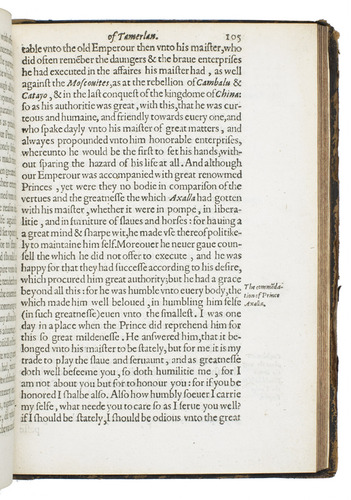 of Tamerlan. 105
table vnto the old Emperour then vnto his maiſter, who
did often remẽber the daungers & the braue enterpriſes
he had executed in the affaires his maiſter had, as well
againſt the Moſcouites, as at the rebellion of Cambalu &
Catayo, & in the laſt conqueſt of the kingdome of China:
ſo as his authoritie was great, with this, that he was cur-
teous and humaine, and friendly towards euery one, and
who ſpake dayly vnto his maiſter of great matters, and
alwayes propounded vnto him honorable enterpriſes,
whereunto he would be the firſt to ſet his hands, with-
out ſparing the hazard of his life at all. And although
our Emperour was accompanied with great renowned
Princes, yet were they no bodie in compariſon of the
vertues and the greatneſſe the which Axalla had gotten
with his maiſter, whether it were in pompe, in libera-
litie, and in furniture of ſlaues and horſes: for hauing a
great mind & ſharpe wit, he made vſe thereof politike-
ly to maintaine him ſelf. Moreouer he neuer gaue coun-
ſell the which he did not offer to execute, and he was
happy for that they had ſucceſſe according to his deſire,
which procured him great authority; but he had a grace
beyond all this: for he was humble vnto euery body, the
which made him well beloued, in humbling him ſelfe
(in ſuch greatneſſe) euen vnto the ſmalleſt. I was one
day in a place when the Prince did reprehend him for
this ſo great mildeneſſe. He anſwered him, that it be-
longed vnto his maiſter to be ſtately, but for me it is my
trade to play the ſlaue and ſeruaunt, and as greatneſſe
doth well beſeeme you, ſo doth humilitie me, for I
am not about you but for to honour you: for if you be
honored I ſhalbe alſo. Alſo how humbly ſoeuer I carrie
my ſelfe, what neede you to care ſo as I ſerue you well?
if I ſhould be ſtately, I ſhould be odious vnto the great
The commẽda-
tion of Prince
Axalla.